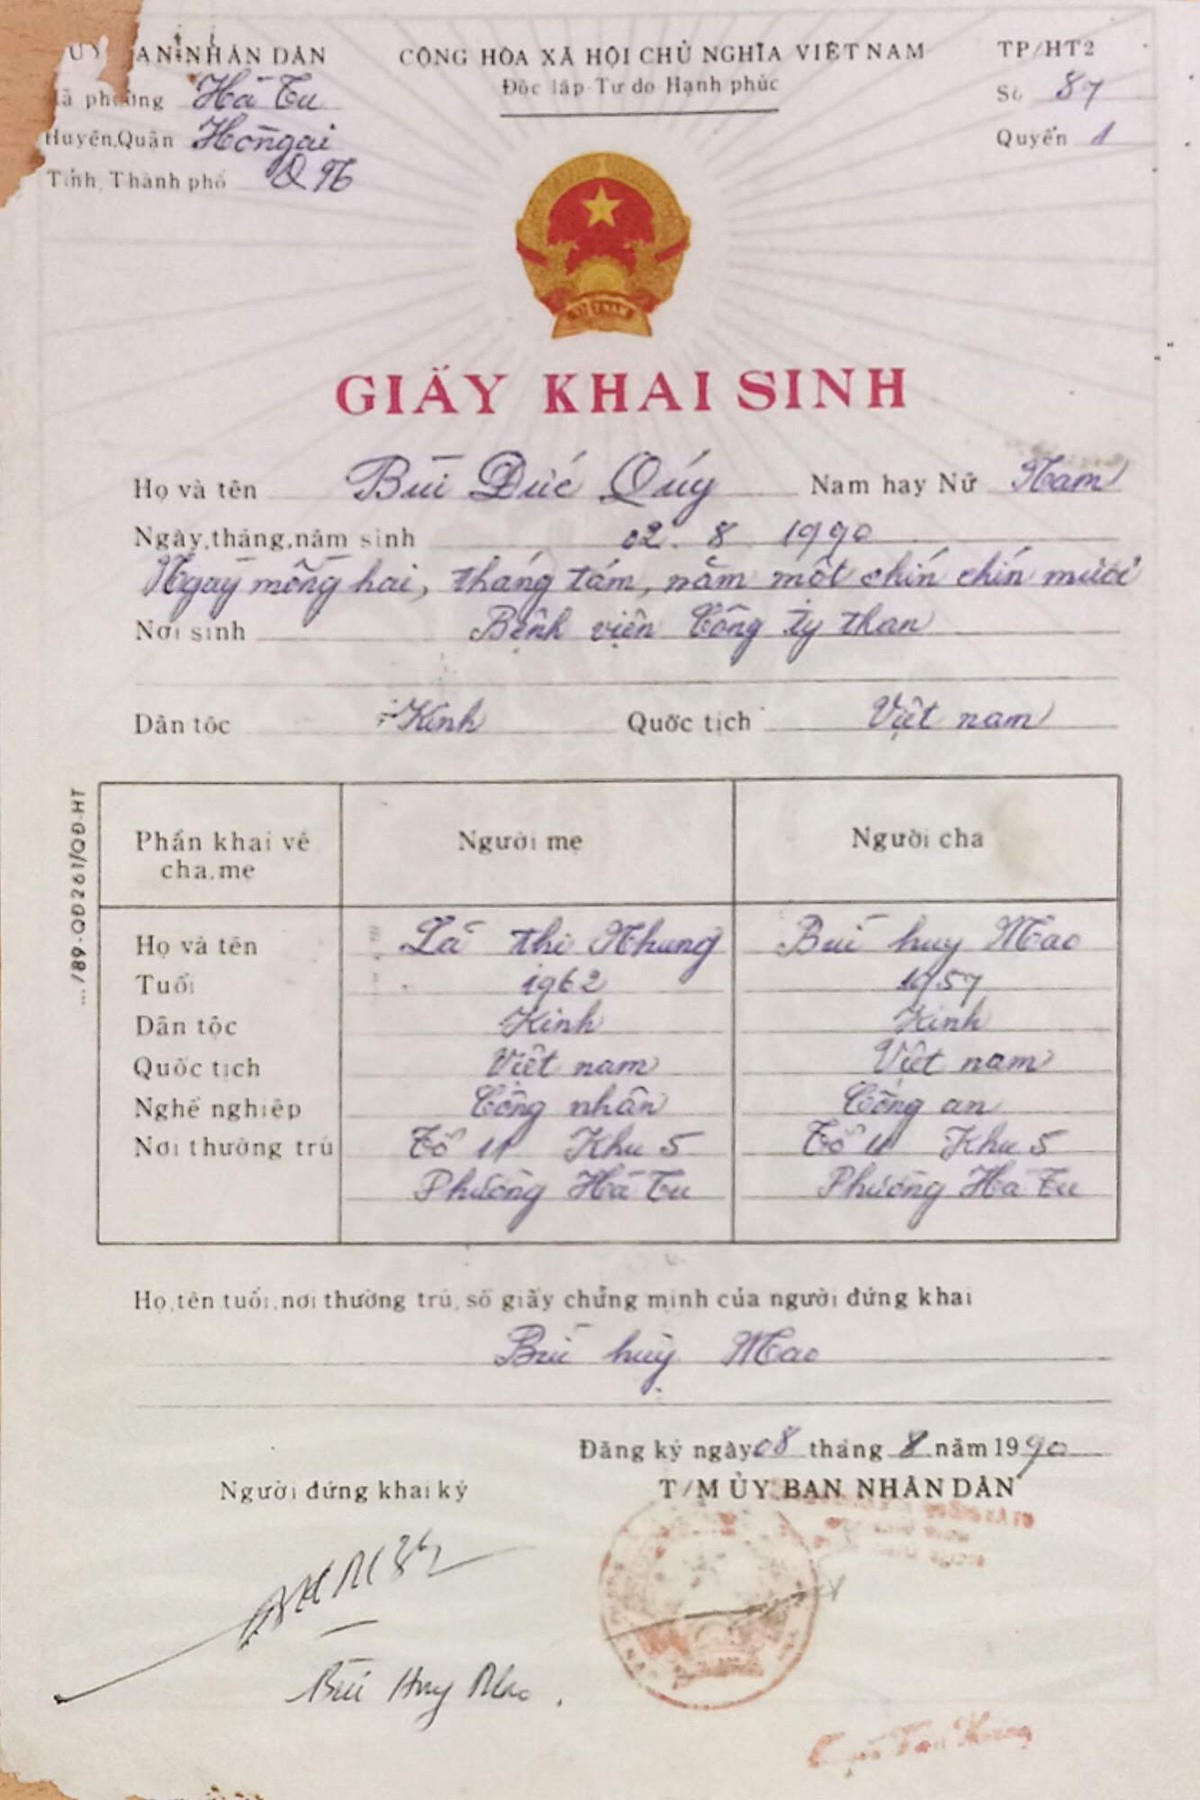 ỦY BAN NHÂN DÂN
Xã phường Hà Tu
Huyện, Quận Hòngai
Tỉnh, Thành phố QN
CỘNG HÒA XÃ HỘI CHỦ NGHĨA VIỆT NAM
Độc lập - Tự do Hạnh phúc
TP/HT2
Số 87
Quyển 1
GIẤY KHAI SINH
Họ và tên Bùi Đức Quý Nam hay Nữ Nam
Ngày, tháng, năm sinh 02. 8 1990
Ngày mồng hai, tháng tám, năm một chín chín mươi
Nơi sinh Bệnh viện Công ty than
Dân tộc Kinh Quốc tịch Việt nam
.../89-QĐ261/QĐ-HT
Phần khai về cha, mẹ Người mẹ Người cha
Họ và tên Lã thị Nhung Bùi huy Mao
Tuổi 1962 1957
Dân tộc Kinh Kinh
Quốc tịch Việt nam Việt nam
Nghề nghiệp Công nhân Công an
Nơi thường trú Tổ 11 Khu 5 Tổ 11 Khu 5
Phường Hà Tu Phường Hà Tu
Họ, tên tuổi, nơi thường trú, số giấy chứng minh của người đứng khai
Bùi huy Mao
Đăng ký ngày 08 tháng 8 năm 1990
Người đứng khai ký
T/M ỦY BAN NHÂN DÂN
Bùi Huy Mao